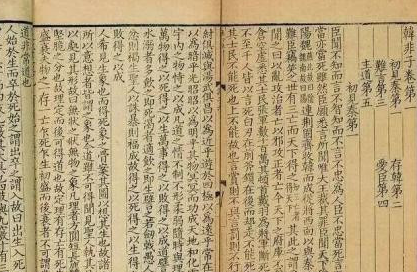 韓非子卷第一
初見秦第一 存韓第二
難言第三 愛臣第四
主道第五
初見秦第一
臣聞不知而言不智知而不言不忠為人臣不忠當死
當亦當死雖然臣願悉言所聞唯大王裁其罪臣聞天下
陽魏 連荊固齊收韓而成從將西面以與秦
難臣竊笑之世有三亡而天下得之 其此之謂
聞之曰以亂攻治者亡以邪攻正者亡今天下之府庫不
倉空虛悉其士民張軍數十百萬其頓首戴羽為將軍斷死
不至千人皆以言死白刃在前斧鑕在後而卻走不能死
其士民不能死也上不能故也言賞則不與言罰則不行
紂俱滅與湯武俱昌以為近乎遊於四極以為遠乎常在
以為暗乎其光昭昭以為明乎其物冥冥而功成天地和化
宇內之物恃之以成凡道之情不制不形柔弱隨時與理
萬物得之以死得之以生萬事得之以敗得之以成道譬
水溺者多飲之即死渴者適飲之即生譬之若劍戟愚人
然則禍生聖人以誅暴則福成故得之以死得之以生得
敗得之以成
人希見生象也而得死象之骨案其圖以想其生也故諸
所以意想者皆謂之象也今道雖不可得聞見聖人執其
以處見其形故曰無狀之狀無物之象凡理者方圓短長
堅脆之分也故理定而後可得道也故定理有存亡有死
盛衰夫物之一存一亡乍死乍生初盛而後衰者不可謂
道非常道也
人始於生而卒於死始之謂出卒之謂入故曰出生入死